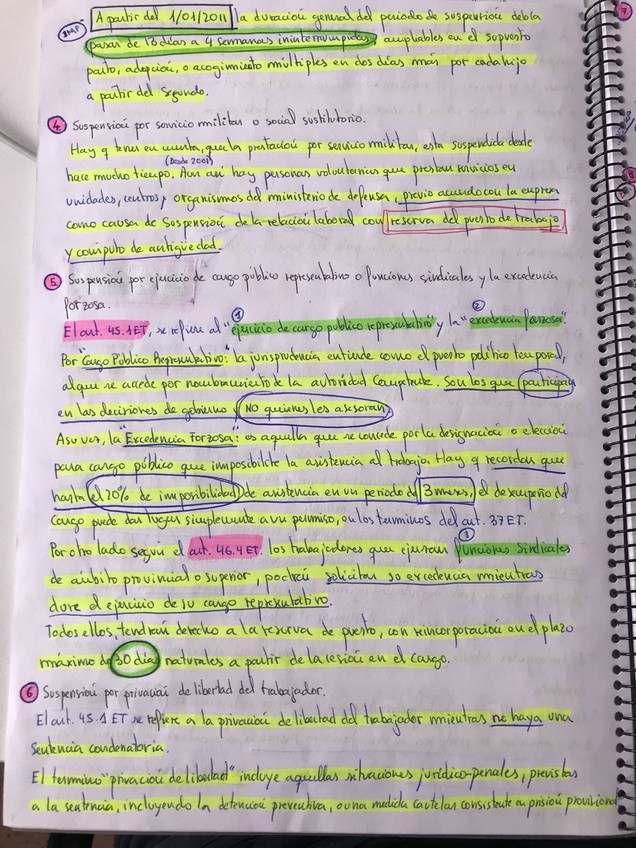 IMP A partir del 1/01/2011 la duración general del periodo de suspensión debía
pasar de 13 días a 4 semanas ininterrumpidas, ampliables en el supuesto
parto, adopción, o acogimiento múltiples en dos días más por cada hijo
a partir del segundo.
4 Suspensión por servicio militar o social sustitutorio.
Hay q tener en cuenta, que la prestación por servicio militar, esta suspendida desde
(Desde 2001)
hace mucho tiempo. Aun así hay personas voluntarias que prestan servicios en
unidades, centros y organismos del ministerio de defensa, previo acuerdo con la empresa
como causa de suspensión de la relación laboral con reserva del puesto de trabajo
y computo de antigüedad.
5 Suspensión por ejercicio de cargo público representativo o funciones sindicales y la excedencia
forzosa.
1 2
El art. 45.1 ET, se refiere al "ejercicio de cargo publico representativo" y la "excedencia forzosa".
Por "Cargo Público Representativo": la jurisprudencia entiende como el puesto político temporal,
al que se accede por nombramiento de la autoridad competente. Son los que participan
en las decisiones de gobierno y NO quienes les asesoran.
A su vez, la "Excedencia forzosa": es aquella que se concede por la designación o elección
para cargo público que imposibilite la asistencia al trabajo. Hay q recordar que
hasta el 20% de imposibilidad de asistencia en un periodo de 3 meses, el desempeño del
Cargo puede dar lugar simplemente a un permiso, en los terminos del art. 37 ET.
3
Por otro lado según el art. 46.4 ET. los trabajadores que ejerzan funciones sindicales
de ámbito provincial o superior, podrán solicitar su excedencia mientras
dure el ejercicio de su cargo representativo.
Todos ellos, tendrán derecho a la reserva de puesto, con reincorporación en el plazo
máximo de 30 días naturales a partir de la cesión en el cargo.
6 Suspensión por privación de libertad del trabajador.
El art. 45.1 ET se refiere a la privación de libertad del trabajador mientras no haya una
sentencia condenatoria.
El termino "privación de libertad" incluye aquellas situaciones jurídico-penales, previstas
a la sentencia, incluyendo la detención preventiva, o una medida cautelar consistente en prisión provisional